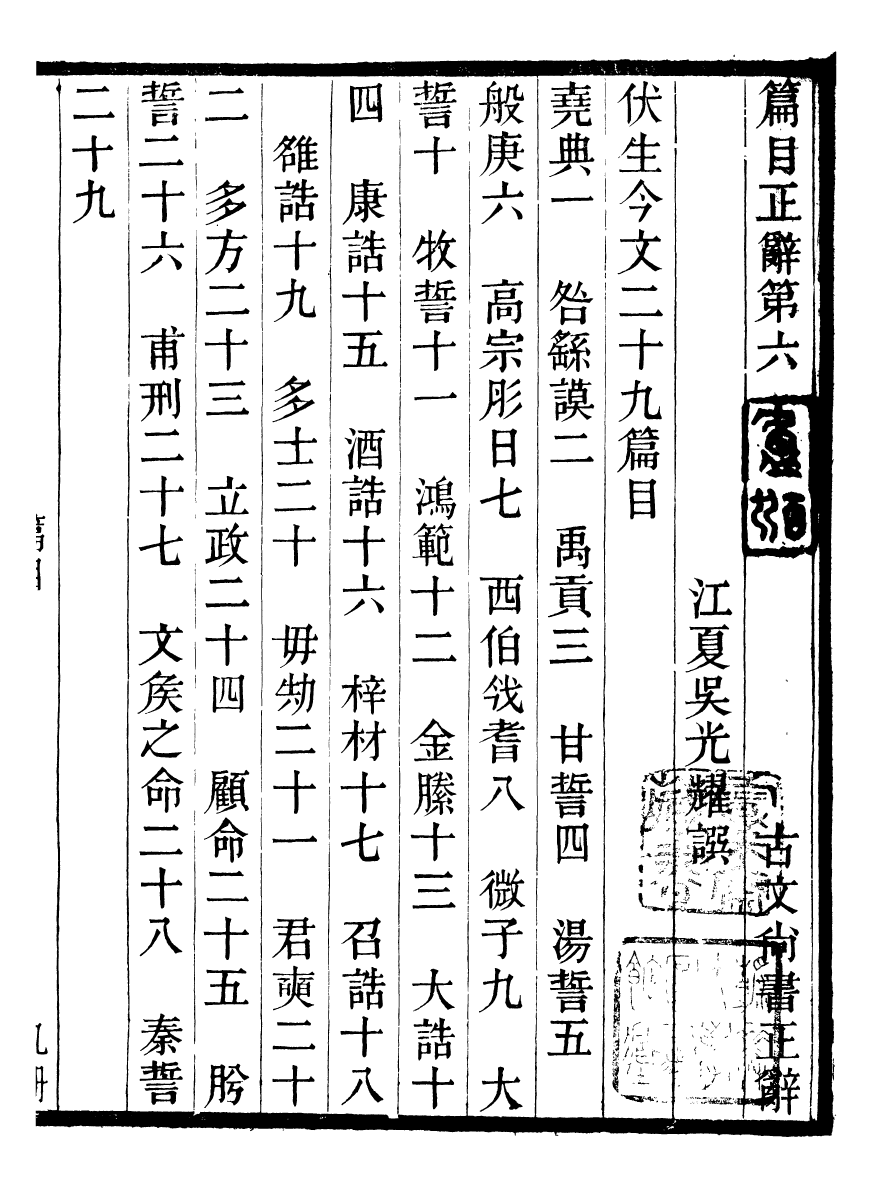 篇目正辭第六　古文尙書正辭
江夏吳光耀譔
伏生今文二十九篇目
堯典一　咎繇謨二　禹貢三　甘誓四　湯誓五
般庚六　高宗肜日七　西伯戏耆八　微子九　大
誓十　牧誓十一　鴻範十二　金縢十三　大誥十
四　康誥十五　酒誥十六　梓材十七　召誥十八
雒誥十九　多士二十　毋劮二十一　君奭二十
二　多方二十三　立政二十四　顧命二十五　肹
誓二十六　甫刑二十七　文矦之命二十八　秦誓
二十九
篇目
九冊